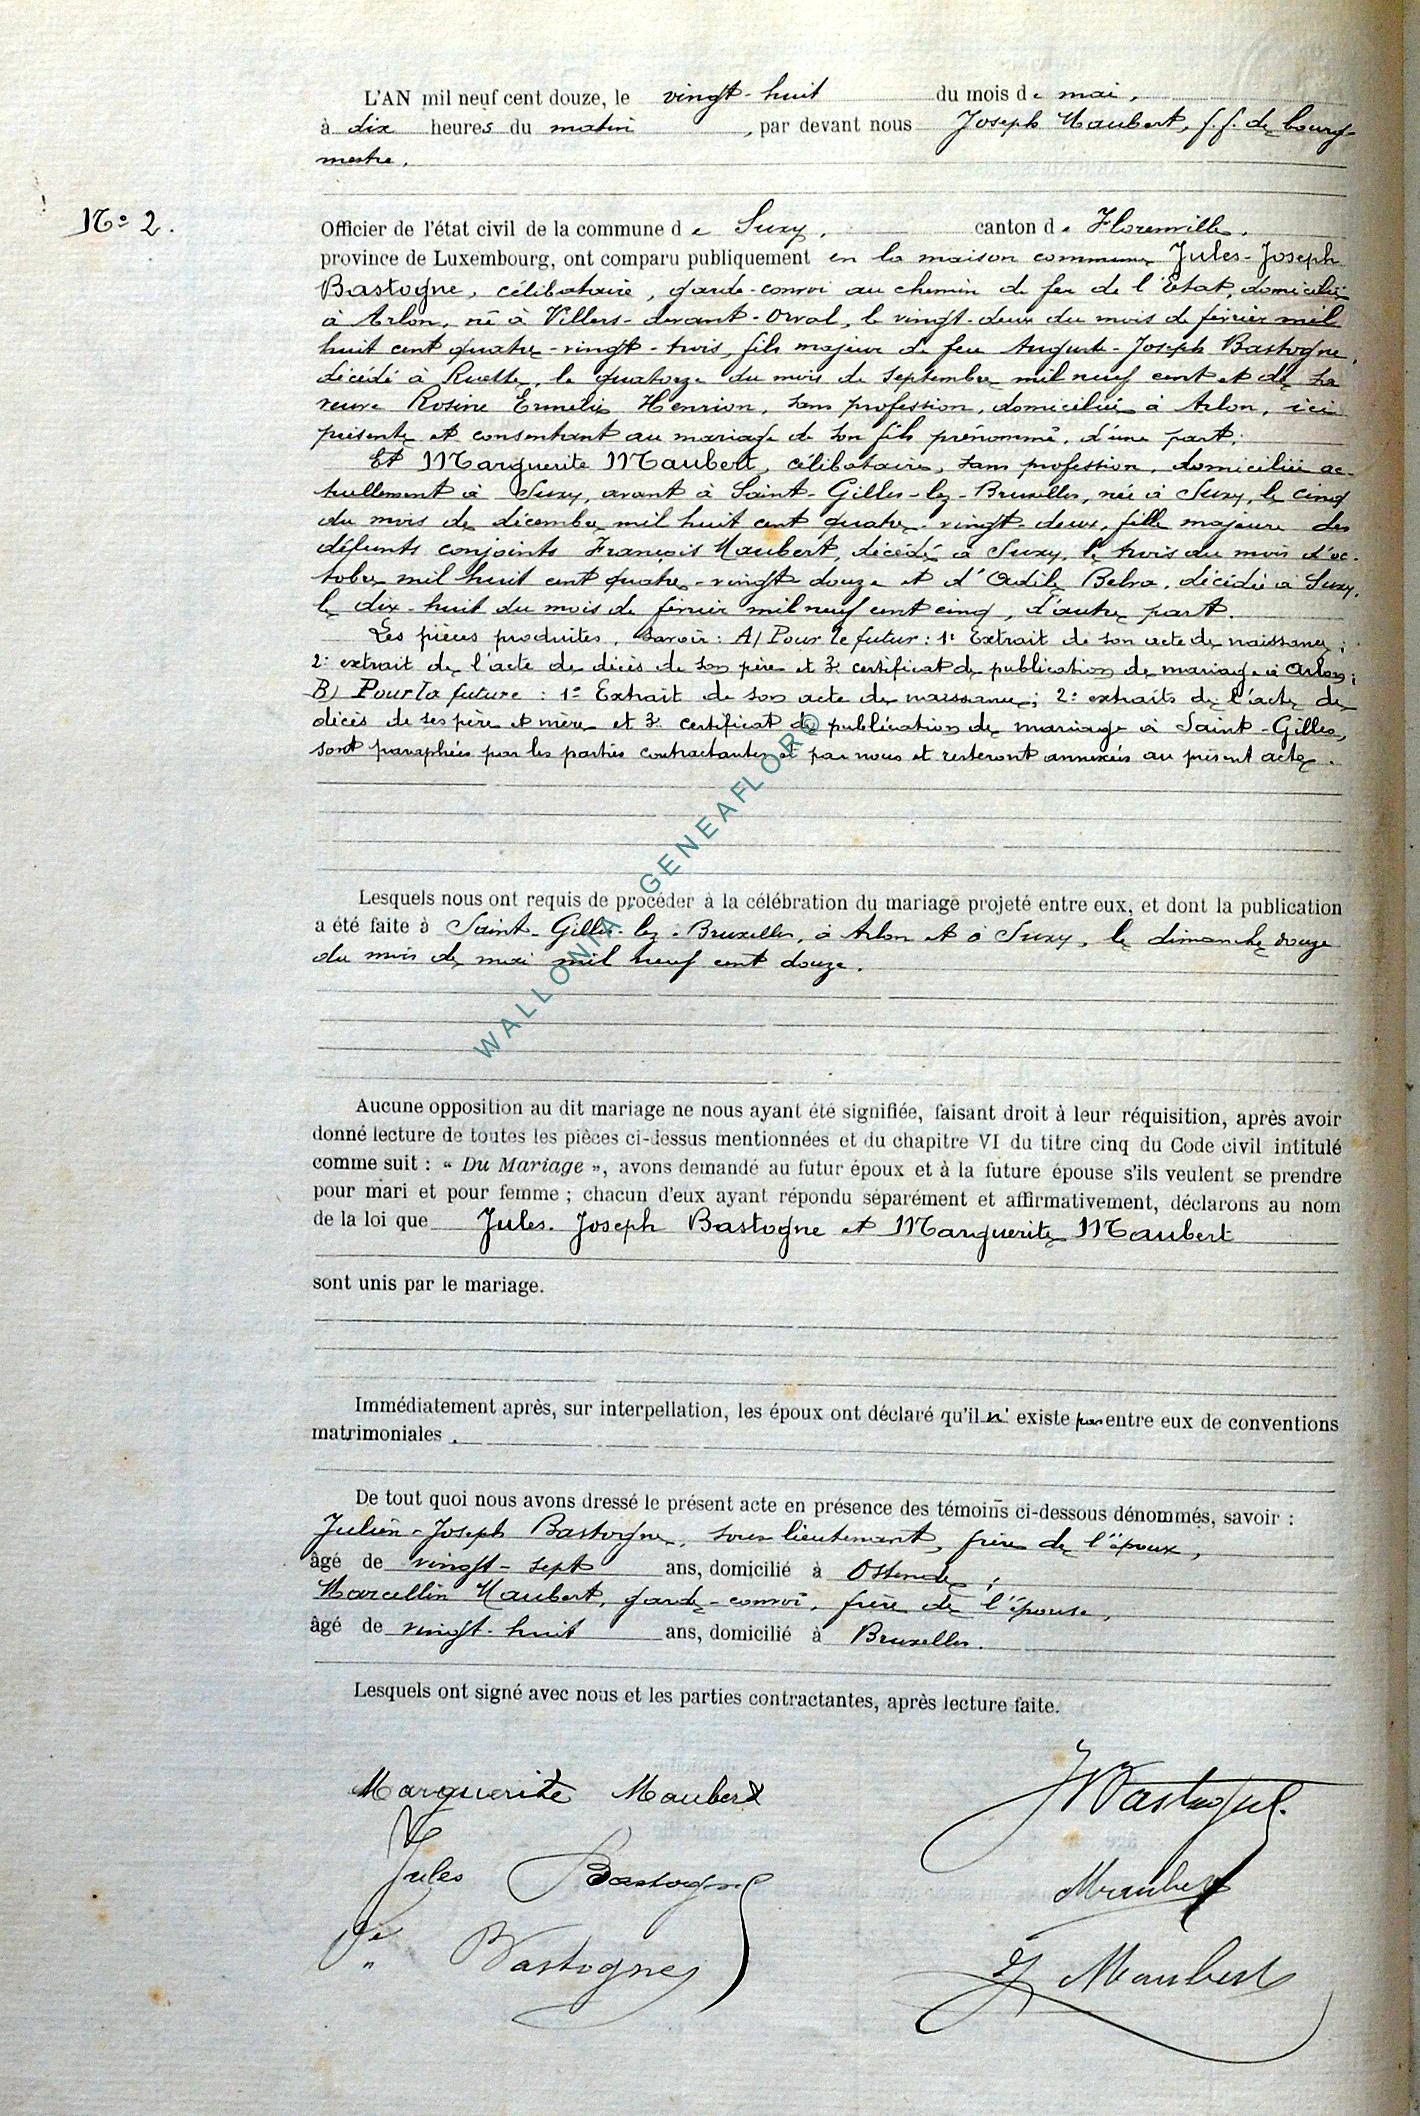 L'AN mil neuf cent douze, le vingt-huit du mois de mai,
à dix heures du matin, par devant nous Joseph Maubert, f.f. de bourg-
mestre,
N° 2.
Officier de l'état civil de la commune de Suxy, canton de Florenville,
province de Luxembourg, ont comparu publiquement en la maison commune Jules-Joseph
Bastogne, célibataire, garde-convoi au chemin de fer de l'Etat, domicilié
à Arlon, né à Villers-devant-Orval, le vingt-deux du mois de février mil
huit cent quatre-vingt-trois, fils majeur de feu Auguste-Joseph Bastogne,
décédé à Ruette, le quatorze du mois de septembre mil neuf cent et de sa
veuve Rosine Ermélie Henrion, sans profession, domiciliée à Arlon, ici
présente et consentant au mariage de son fils prénommé, d'une part;
Et Marguerite Maubert, célibataire, sans profession, domiciliée ac-
tuellement à Suxy, avant à Saint-Gilles-lez-Bruxelles, née à Suxy, le cinq
du mois de décembre mil huit cent quatre-vingt-deux, fille majeure des
défunts conjoints François Maubert, décédé à Suxy, le trois du mois d'oc-
tobre mil huit cent quatre-vingt douze et d'Odile Belva, décédée à Suxy,
le dix-huit du mois de février mil neuf cent cinq, d'autre part.
Les pièces produites, savoir: A) Pour le futur: 1° Extrait de son acte de naissance;
2° extrait de l'acte de décès de son père et 3° certificat de publication de mariage à Arlon;
B) Pour la future: 1° Extrait de son acte de naissance; 2° extraits de l'acte de
décès de ses père et mère et 3° certificat de publication de mariage à Saint-Gilles,
sont paraphées par les parties contractantes et par nous et resteront annexées au présent acte.
WALLONIA - GENEAFLOR©
Lesquels nous ont requis de procéder à la célébration du mariage projeté entre eux, et dont la publication
a été faite à Saint-Gilles-lez-Bruxelles, à Arlon et à Suxy, le dimanche douze
du mois de mai mil neuf cent douze.
Aucune opposition au dit mariage ne nous ayant été signifiée, faisant droit à leur réquisition, après avoir
donné lecture de toutes les pièces ci-dessus mentionnées et du chapitre VI du titre cinq du Code civil intitulé
comme suit : « Du Mariage », avons demandé au futur époux et à la future épouse s'ils veulent se prendre
pour mari et pour femme ; chacun d'eux ayant répondu séparément et affirmativement, déclarons au nom
de la loi que Jules-Joseph Bastogne et Marguerite Maubert
sont unis par le mariage.
Immédiatement après, sur interpellation, les époux ont déclaré qu'il n'existe pas entre eux de conventions
matrimoniales.
De tout quoi nous avons dressé le présent acte en présence des témoins ci-dessous dénommés, savoir :
Julien-Joseph Bastogne, sous lieutenant, frère de l'époux,
âgé de vingt-sept ans, domicilié à Ostende;
Marcellin Maubert, garde-convoi, frère de l'épouse,
âgé de vingt-huit ans, domicilié à Bruxelles.
Lesquels ont signé avec nous et les parties contractantes, après lecture faite.
Marguerite Maubert
J Bastogne
Jules Bastogne
Maubert
Ve Bastogne
J Maubert